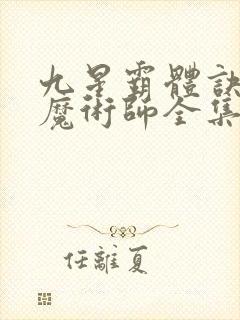 九星霸體訣
魔術師全集
任離夏